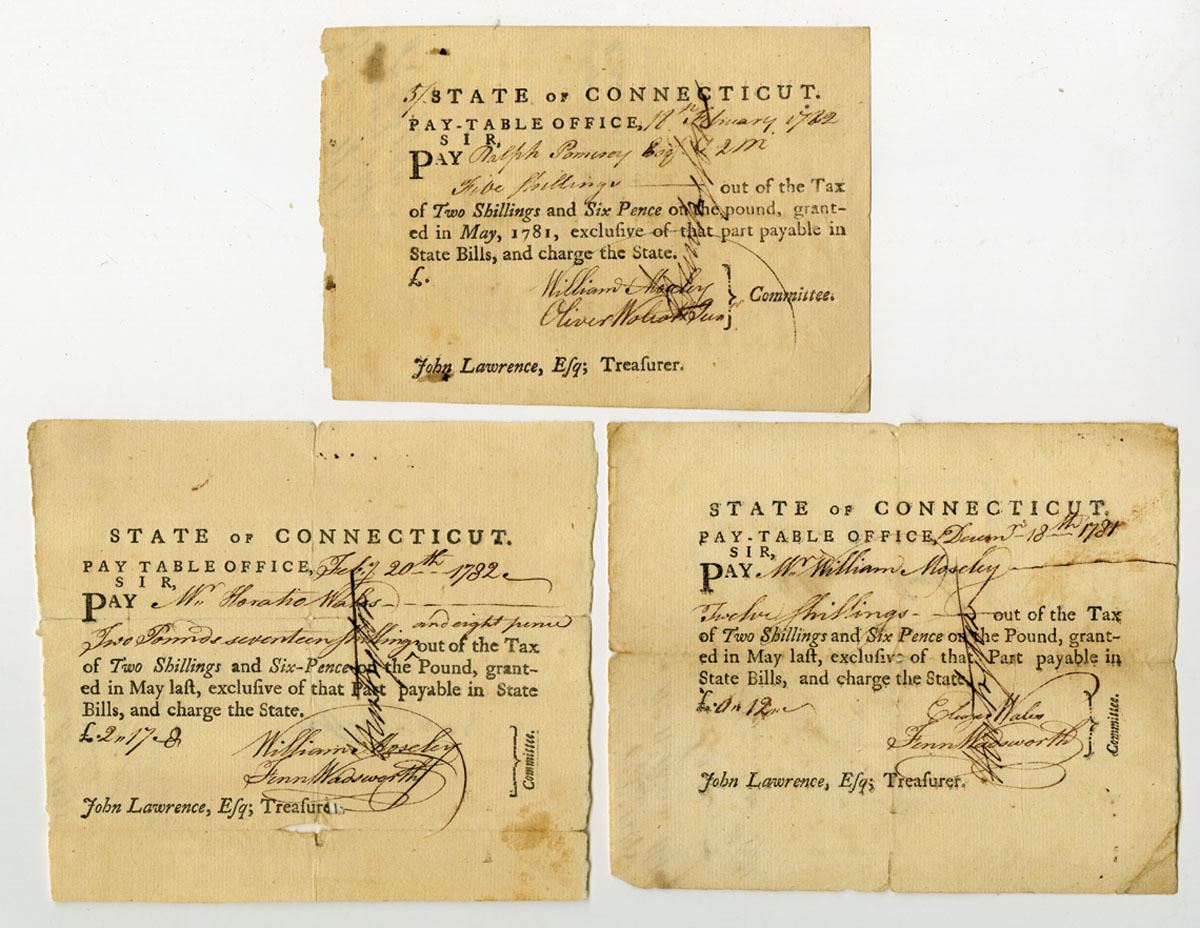 5/ STATE OF CONNECTICUT.
PAY-TABLE OFFICE, 18th February 1782
SIR,
PAY Ralph Pomeroy Esqr. Q M
Five Shillings out of the Tax
of Two Shillings and Six Pence on the pound, grant-
ed in May, 1781, exclusive of that part payable in
State Bills, and charge the State.
£.
William Moseley
Oliver Wolcott Junr
Committee.
John Lawrence, Eſq; Treaſurer.
STATE OF CONNECTICUT.
PAY TABLE OFFICE, Feby 20th 1782
SIR,
PAY Mr Horatio Wales
and eight pence
Two Pounds seventeen shillings out of the Tax
of Two Shillings and Six-Pence on the Pound, grant-
ed in May laſt, excluſive of that Part payable in State
Bills, and charge the State.
£.2 " 17 " 8
William Moseley
Fenn Wadsworth
Committee.
John Lawrence, Eſq; Treaſurer.
STATE OF CONNECTICUT.
PAY-TABLE OFFICE, Decemr 18th 1781
SIR,
PAY Mr William Moseley
Twelve Shillings out of the Tax
of Two Shillings and Six Pence on the Pound, grant-
ed in May laſt, excluſive of that Part payable in
State Bills, and charge the State.
£.0 " 12
Eleazr Wales
Fenn Wadsworth
Committee.
John Lawrence, Eſq; Treaſurer.